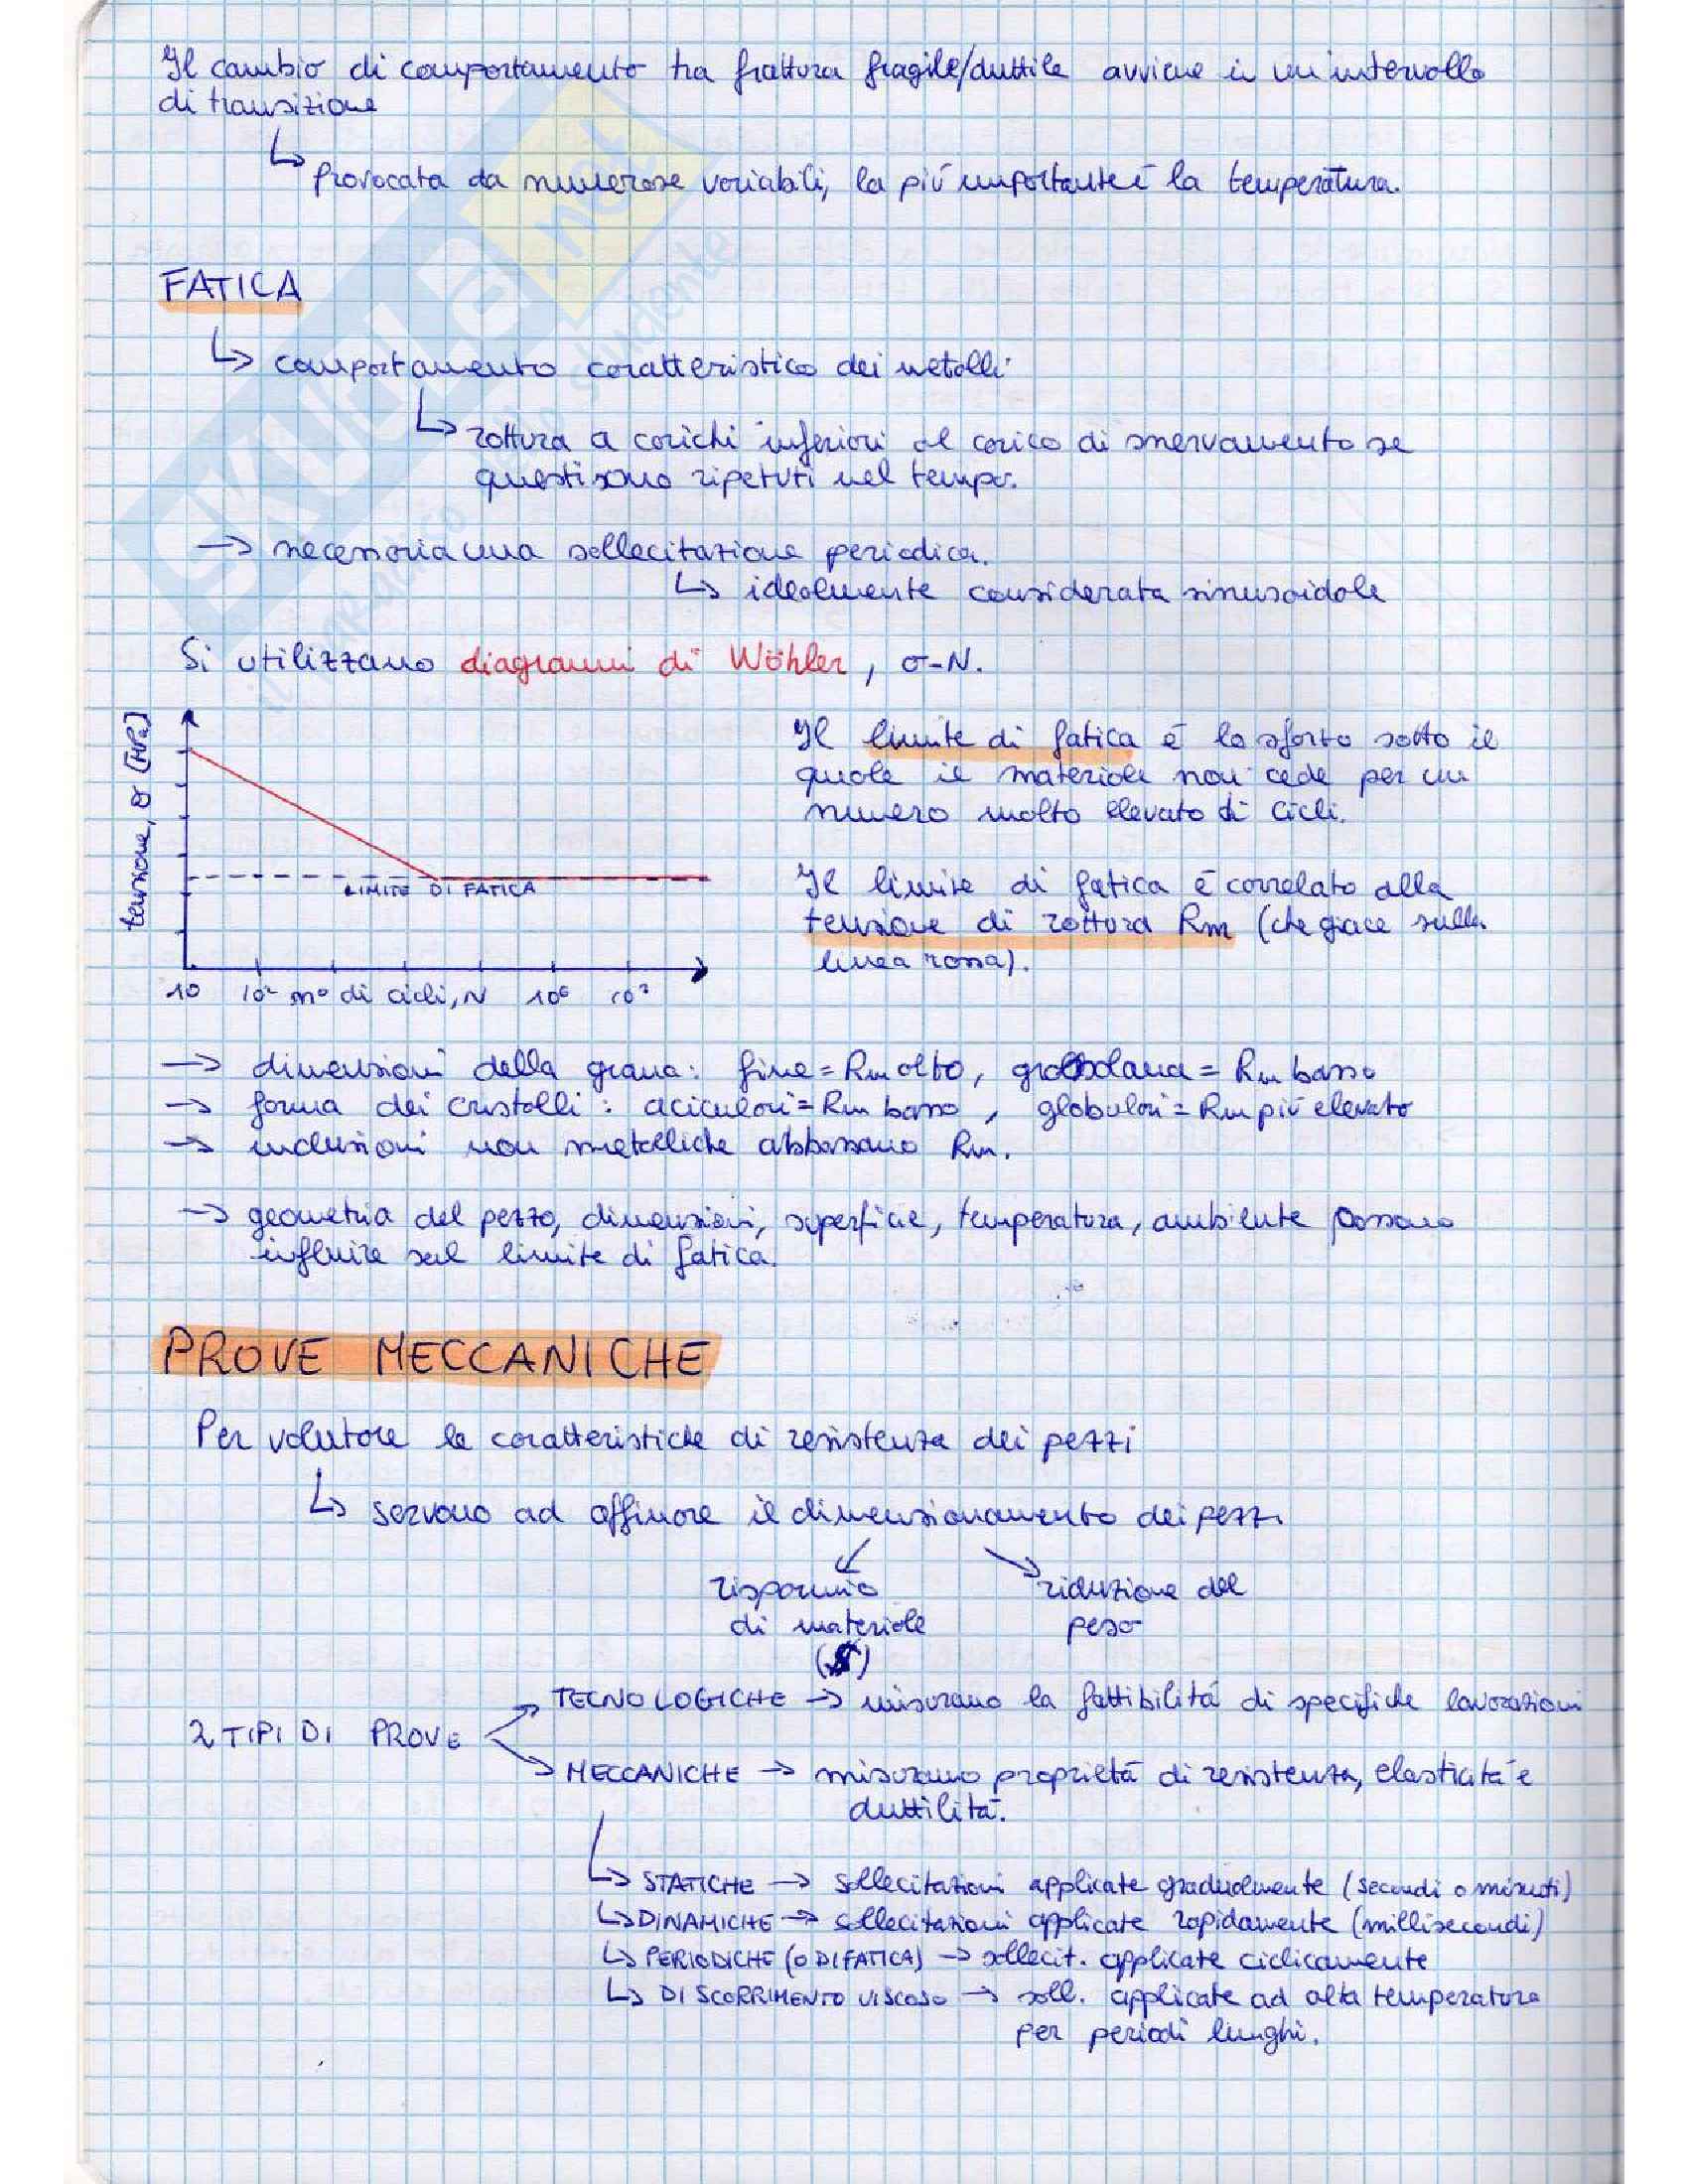 Il cambio di comportamento tra frattura fragile/duttile avviene in un intervallo
di transizione
↳ provocata da numerose variabili, la più importante è la temperatura.
FATICA
↳ comportamento caratteristico dei metalli
↳ rottura a carichi inferiori al carico di snervamento se
questi sono ripetuti nel tempo.
→ necessaria una sollecitazione periodica.
↳ idealmente considerata sinusoidale
Si utilizzano diagrammi di Wöhler, σ-N.
tensione, σ (MPa)
LIMITE DI FATICA
10 10² n° di cicli, N 10⁶ 10⁷
Il limite di fatica è lo sforzo sotto il
quale il materiale non cede per un
numero molto elevato di cicli.
Il limite di fatica è correlato alla
tensione di rottura Rm (che giace sulla
linea rossa).
→ dimensioni della grana: fine = Rm alto, grossolana = Rm basso
→ forma dei cristalli: aciculari = Rm basso, globulari = Rm più elevato
→ inclusioni non metalliche abbassano Rm.
→ geometria del pezzo, dimensioni, superficie, temperatura, ambiente possono
influire sul limite di fatica.
PROVE MECCANICHE
Per valutare le caratteristiche di resistenza dei pezzi
↳ servono ad affinare il dimensionamento dei pezzi
risparmio
di materiale
($)
riduzione del
peso
2 TIPI DI PROVE
TECNOLOGICHE → misurano la fattibilità di specifiche lavorazioni
MECCANICHE → misurano proprietà di resistenza, elasticità e
duttilità.
↳ STATICHE → sollecitazioni applicate gradualmente (secondi o minuti)
↳ DINAMICHE → sollecitazioni applicate rapidamente (millisecondi)
↳ PERIODICHE (O DI FATICA) → sollecit. applicate ciclicamente
↳ DI SCORRIMENTO VISCOSO → soll. applicate ad alta temperatura
per periodi lunghi.
SKUOLA.net